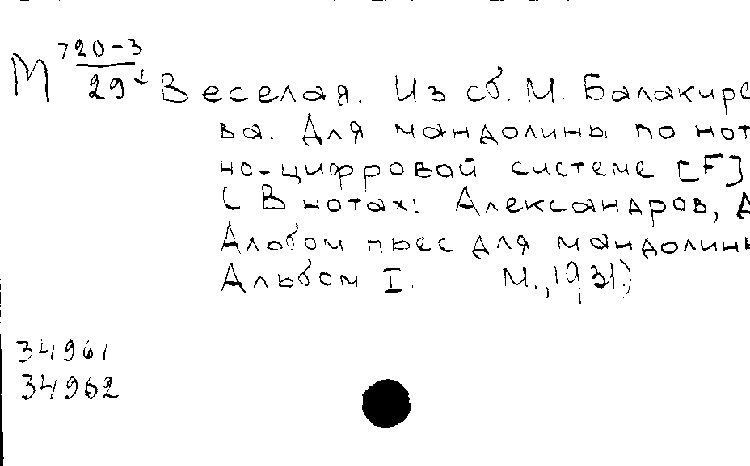 М 720-3
29 Веселая. Из сб. М. Балакире
ва. Для мандолины по нот
но-цифровой системе [F]
(В нотах: Александров, А
Альбом пьес для мандолины
Альбом I. М., 1931)
34961
34962